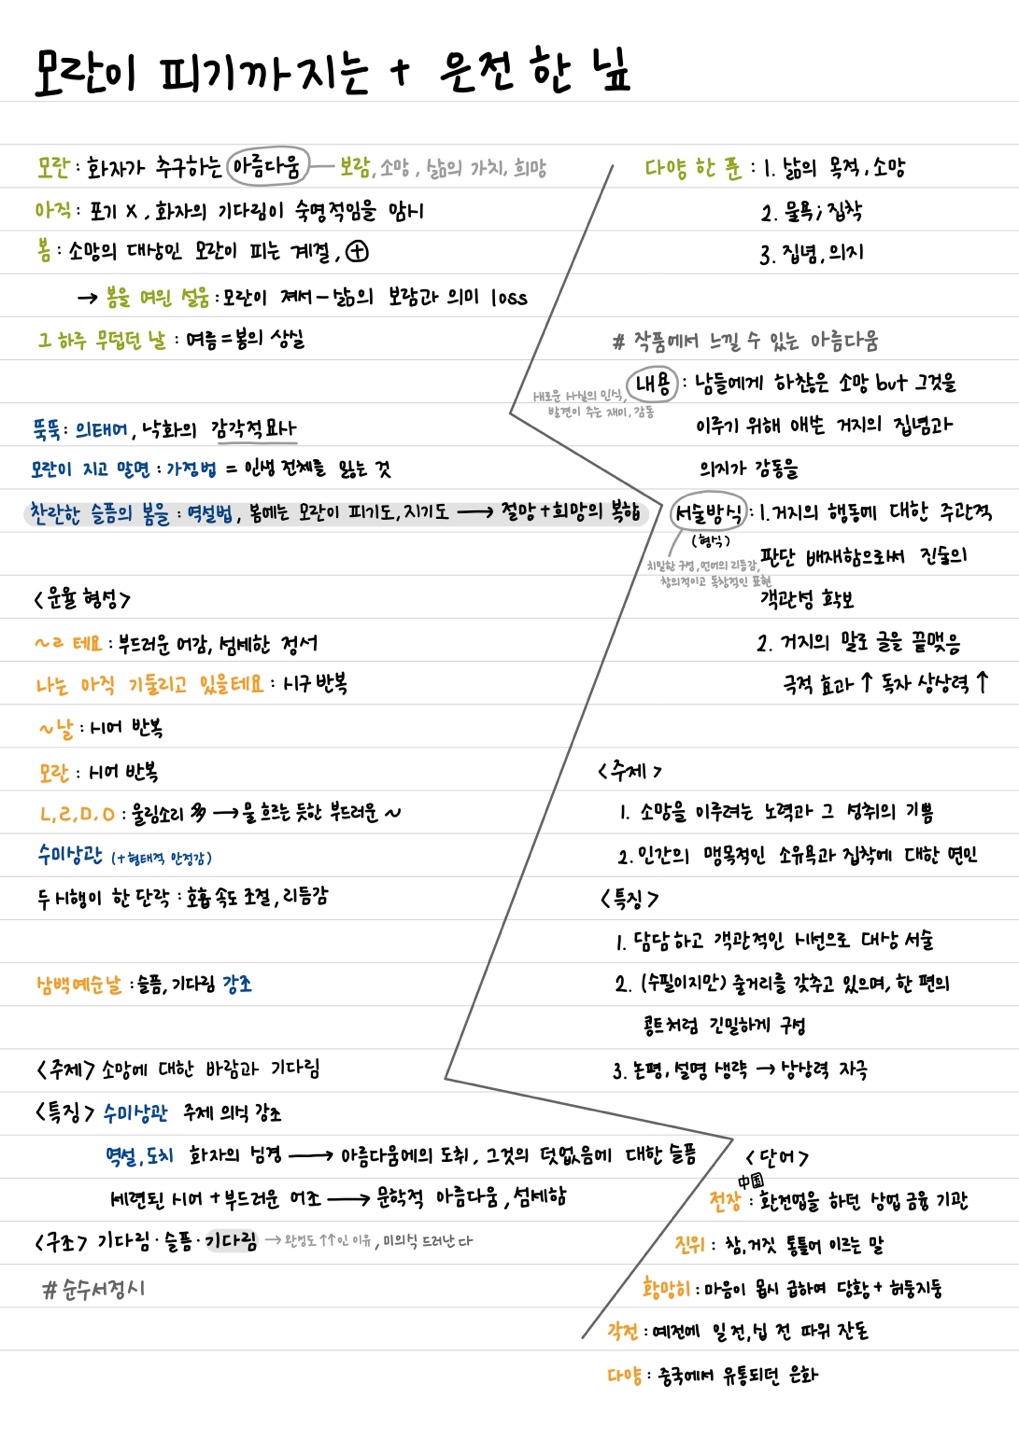 모란이 피기까지는 + 은전 한 닢
모란 : 화자가 추구하는 아름다움 — 보람, 소망, 삶의 가치, 희망
아직 : 포기 X, 화자의 기다림이 숙명적임을 암시
봄 : 소망의 대상인 모란이 피는 계절, ⊕
→ 봄을 여윈 설움 : 모란이 져서 - 삶의 보람과 의미 loss
그 하루 무덥던 날 : 여름 = 봄의 상실
뚝뚝 : 의태어, 낙화의 감각적 묘사
모란이 지고 말면 : 가정법 = 인생 전체를 잃는 것
찬란한 슬픔의 봄을 : 역설법, 봄에는 모란이 피기도, 지기도 → 절망+희망의 복합
<운율 형성>
~ㄹ 테요 : 부드러운 어감, 섬세한 정서
나는 아직 기둘리고 있을테요 : 시구 반복
~날 : 시어 반복
모란 : 시어 반복
ㄴ,ㄹ,ㅁ,ㅇ : 울림소리 多 → 물 흐르는 듯한 부드러운 ~
수미상관 (+형태적 안정감)
두 시행이 한 단락 : 호흡 속도 조절, 리듬감
삼백예순날 : 슬픔, 기다림 강조
<주제> 소망에 대한 바람과 기다림
<특징> 수미상관 주제 의식 강조
역설, 도치 화자의 심경 → 아름다움에의 도취, 그것의 덧없음에 대한 슬픔
세련된 시어 + 부드러운 어조 → 문학적 아름다움, 섬세함
<구조> 기다림·슬픔·기다림 → 완성도 ↑↑인 이유, 미의식 드러난다
# 순수서정시
다양 한 푼 : 1. 삶의 목적, 소망
2. 물욕; 집착
3. 집념, 의지
# 작품에서 느낄 수 있는 아름다움
내용 : 남들에게 하찮은 소망 but 그것을
새로운 사실의 인식,
발견이 주는 재미, 감동
이루기 위해 애쓴 거지의 집념과
의지가 감동을
서술방식 : 1. 거지의 행동에 대한 주관적
(형식)
치밀한 구성, 언어의 리듬감,
창의적이고 독창적인 표현
판단 배제함으로써 진술의
객관성 확보
2. 거지의 말로 글을 끝맺음
극적 효과 ↑ 독자 상상력 ↑
<주제>
1. 소망을 이루려는 노력과 그 성취의 기쁨
2. 인간의 맹목적인 소유욕과 집착에 대한 연민
<특징>
1. 담담하고 객관적인 시선으로 대상 서술
2. (수필이지만) 줄거리를 갖추고 있으며, 한 편의
콩트처럼 긴밀하게 구성
3. 논평, 설명 생략 → 상상력 자극
<단어>
中国
전장 : 환전업을 하던 상업 금융 기관
진위 : 참, 거짓 통틀어 이르는 말
황망히 : 마음이 몹시 급하여 당황 + 허둥지둥
각전 : 예전에 일 전, 십 전 따위 잔돈
다양 : 중국에서 유통되던 은화